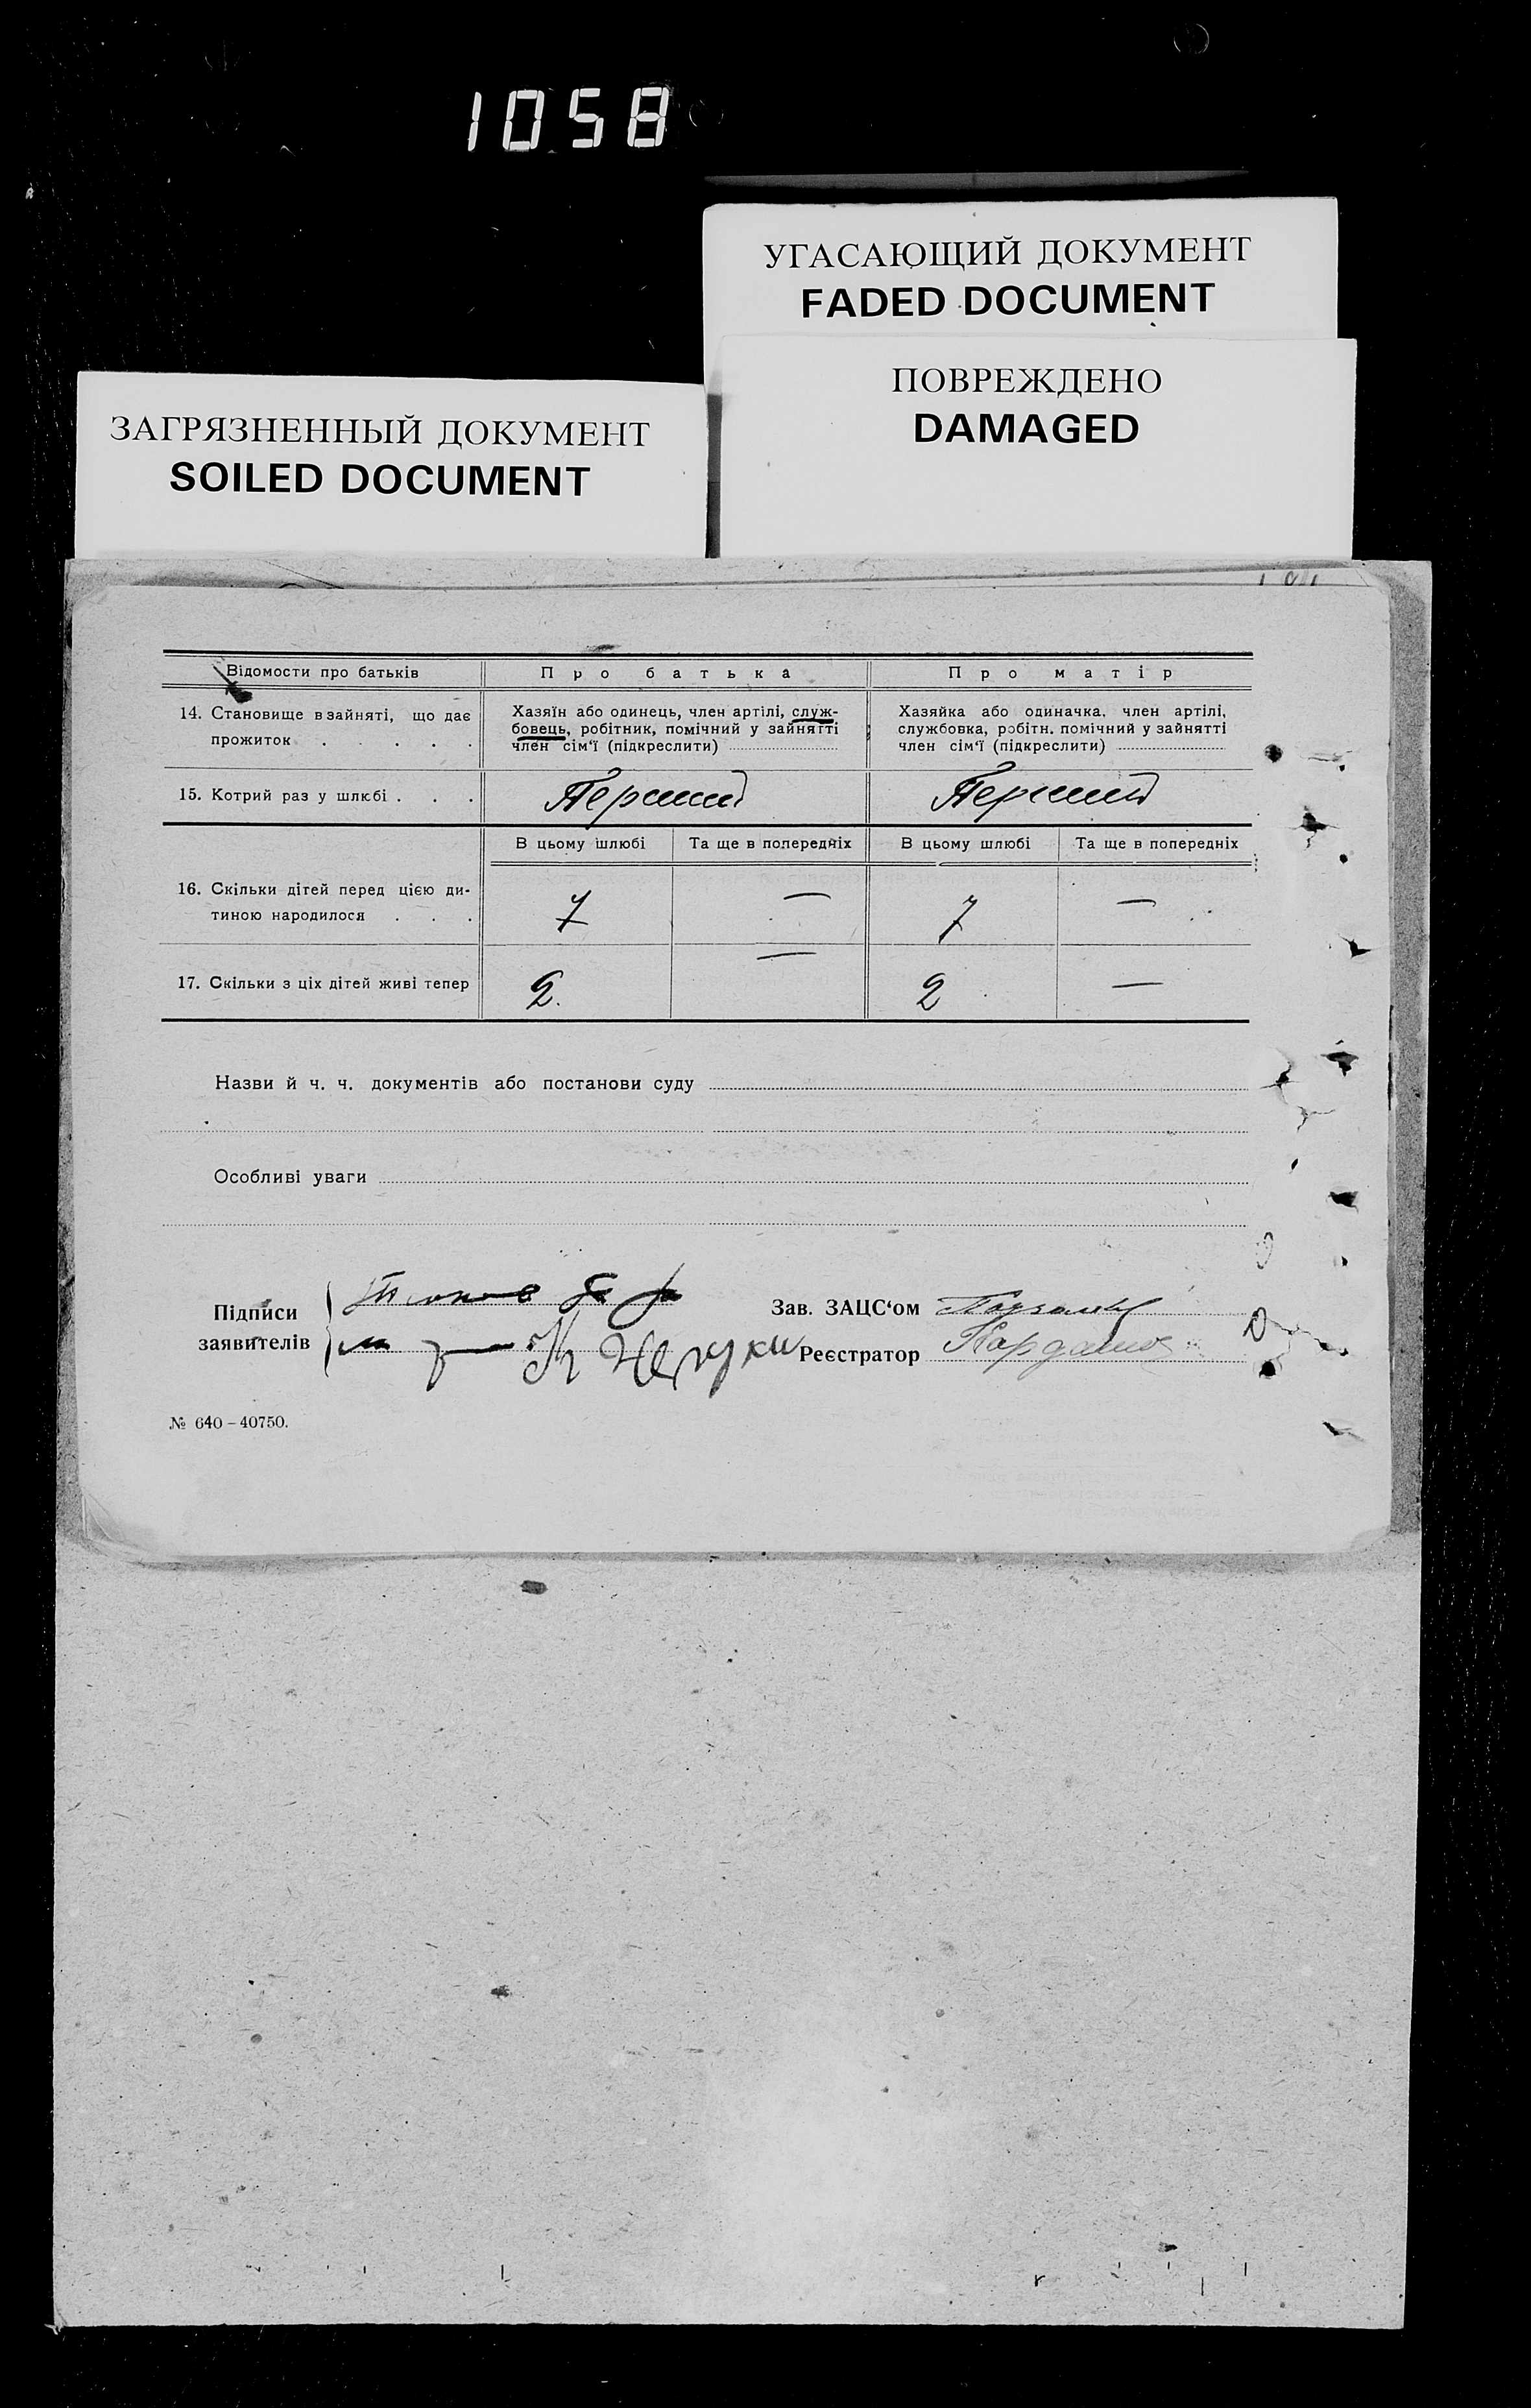 1058
УГАСАЮЩИЙ ДОКУМЕНТ
FADED DOCUMENT
ПОВРЕЖДЕНО
DAMAGED
ЗАГРЯЗНЕННЫЙ ДОКУМЕНТ
SOILED DOCUMENT
Відомости про батьків Про батька Про матір
14. Становище в зайняті, що дає
прожиток . . . . .
Хазяїн або одинець, член артілі, служ-
бовець, робітник, помічний у зайнятті
член сім'ї (підкреслити)
Хазяйка або одиначка, член артілі,
службовка, робітн. помічний у зайнятті
член сім'ї (підкреслити)
15. Котрий раз у шлюбі . . . Перший Перший
В цьому шлюбі Та ще в попередніх В цьому шлюбі Та ще в попередніх
16. Скільки дітей перед цією ди-
тиною народилося . . . 7 — 7 —
17. Скільки з ціх дітей живі тепер 2. — 2 —
Назви й ч. ч. документів або постанови суду
Особливі уваги
Підписи
заявителів
Зав. ЗАЦС'ом
Реєстратор
№ 640 – 40750.